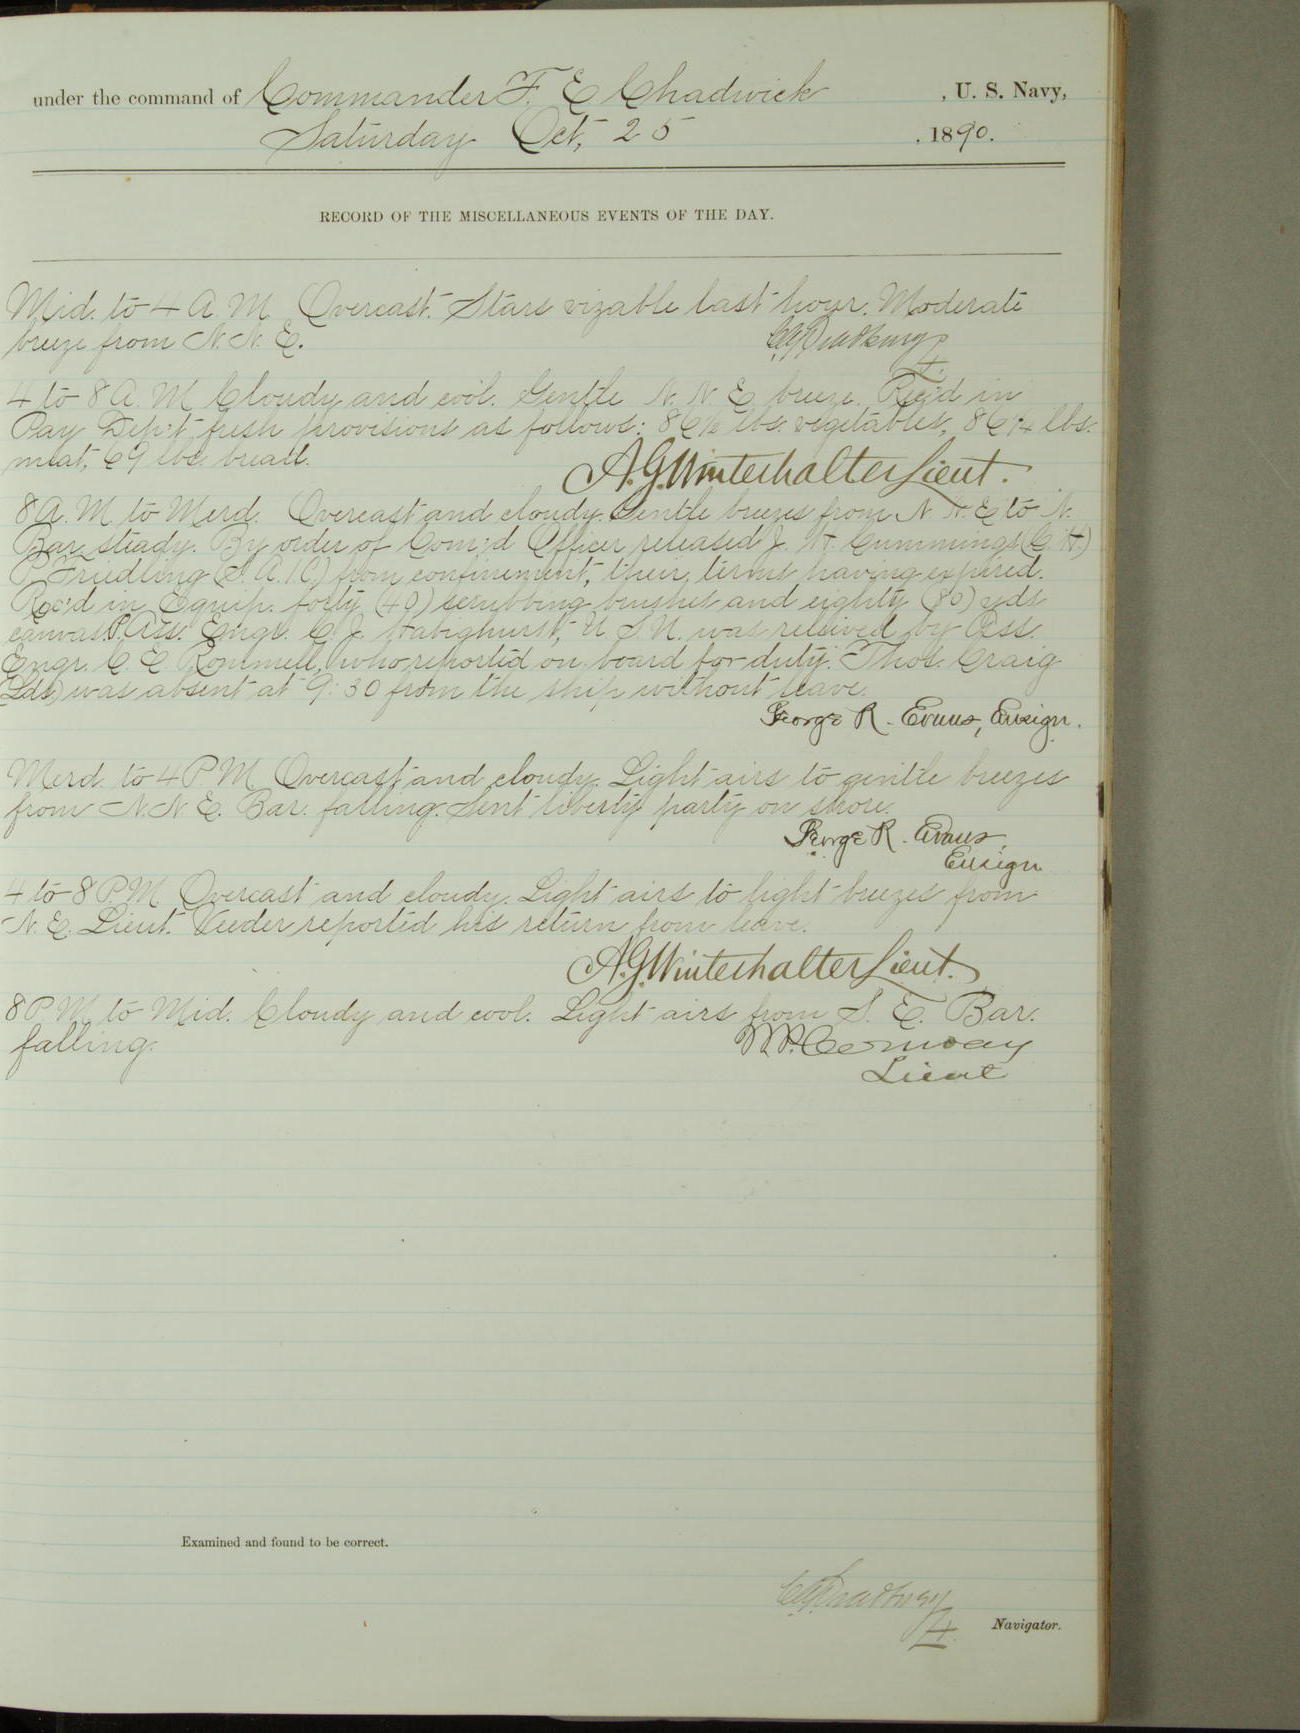 under the command of Commander F. E. Chadwick , U. S. Navy,
Saturday Oct, 25 , 1890.
RECORD OF THE MISCELLANEOUS EVENTS OF THE DAY.
Mid. to 4 A. M. Overcast. Stars vizable last hour. Moderate
breeze from N. N. E.
4 to 8 A. M. Cloudy and cool. Gentle N. N. E. breeze. Rec'd in
Pay Dep't fresh provisions as follows: 86½ lbs. vegetables, 86¼ lbs.
meat, 69 lbs. bread.
A. G. Winterhalter Lieut.
8 A. M. to Merd. Overcast and cloudy. Gentle breezes from N. N. E. to N.
Bar. steady. By order of Com'd Officer released J. H. Cummings (C. H.)
P. Friedling (S. A. 1 C.) from confinement, their terms having expired.
Rec'd in Equip. forty (40) scrubbing brushes and eighty (80) yds
canvas. P. Ass. Engr. C. J. Habighurst, U. S. N. was relieved by Ass.
Engr. C. E. Rommell, who reported on board for duty. Thos. Craig
(Lds) was absent at 9:30 from the ship without leave.
George R. Evans, Ensign.
Merd. to 4 P M Overcast and cloudy. Light airs to gentle breezes
from N. N. E. Bar. falling. Sent liberty party on shore.
George R. Evans,
Ensign
4 to 8 P. M Overcast and cloudy. Light airs to light breezes from
N. E. Lieut. Veeder reported his return from leave.
A. G. Winterhalter Lieut.
8 P. M. to Mid. Cloudy and cool. Light airs from S. E. Bar.
falling.
W. P. Conway
Lieut
Examined and found to be correct.
Navigator.